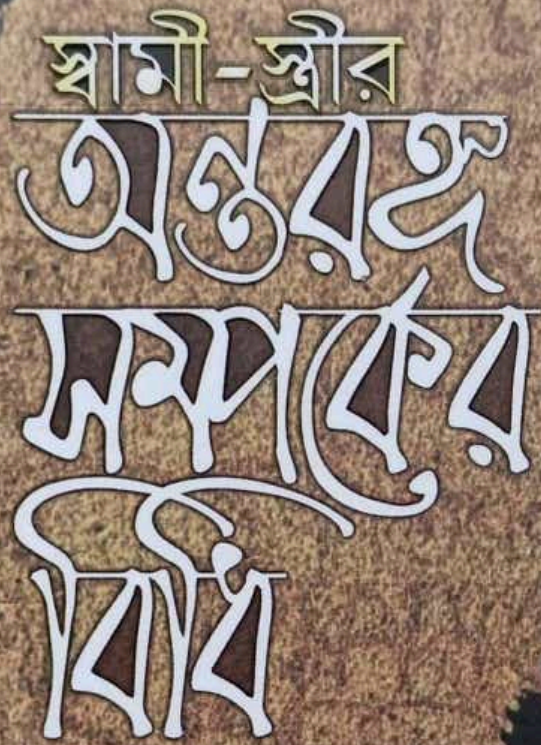 স্বামী-স্ত্রীর
অন্তরঙ্গ
সম্পর্কের
বিধি